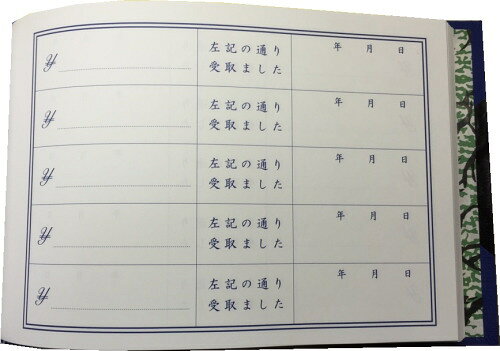 ¥
左記の通り
受取ました
年 月 日
¥
左記の通り
受取ました
年 月 日
¥
左記の通り
受取ました
年 月 日
¥
左記の通り
受取ました
年 月 日
¥
左記の通り
受取ました
年 月 日